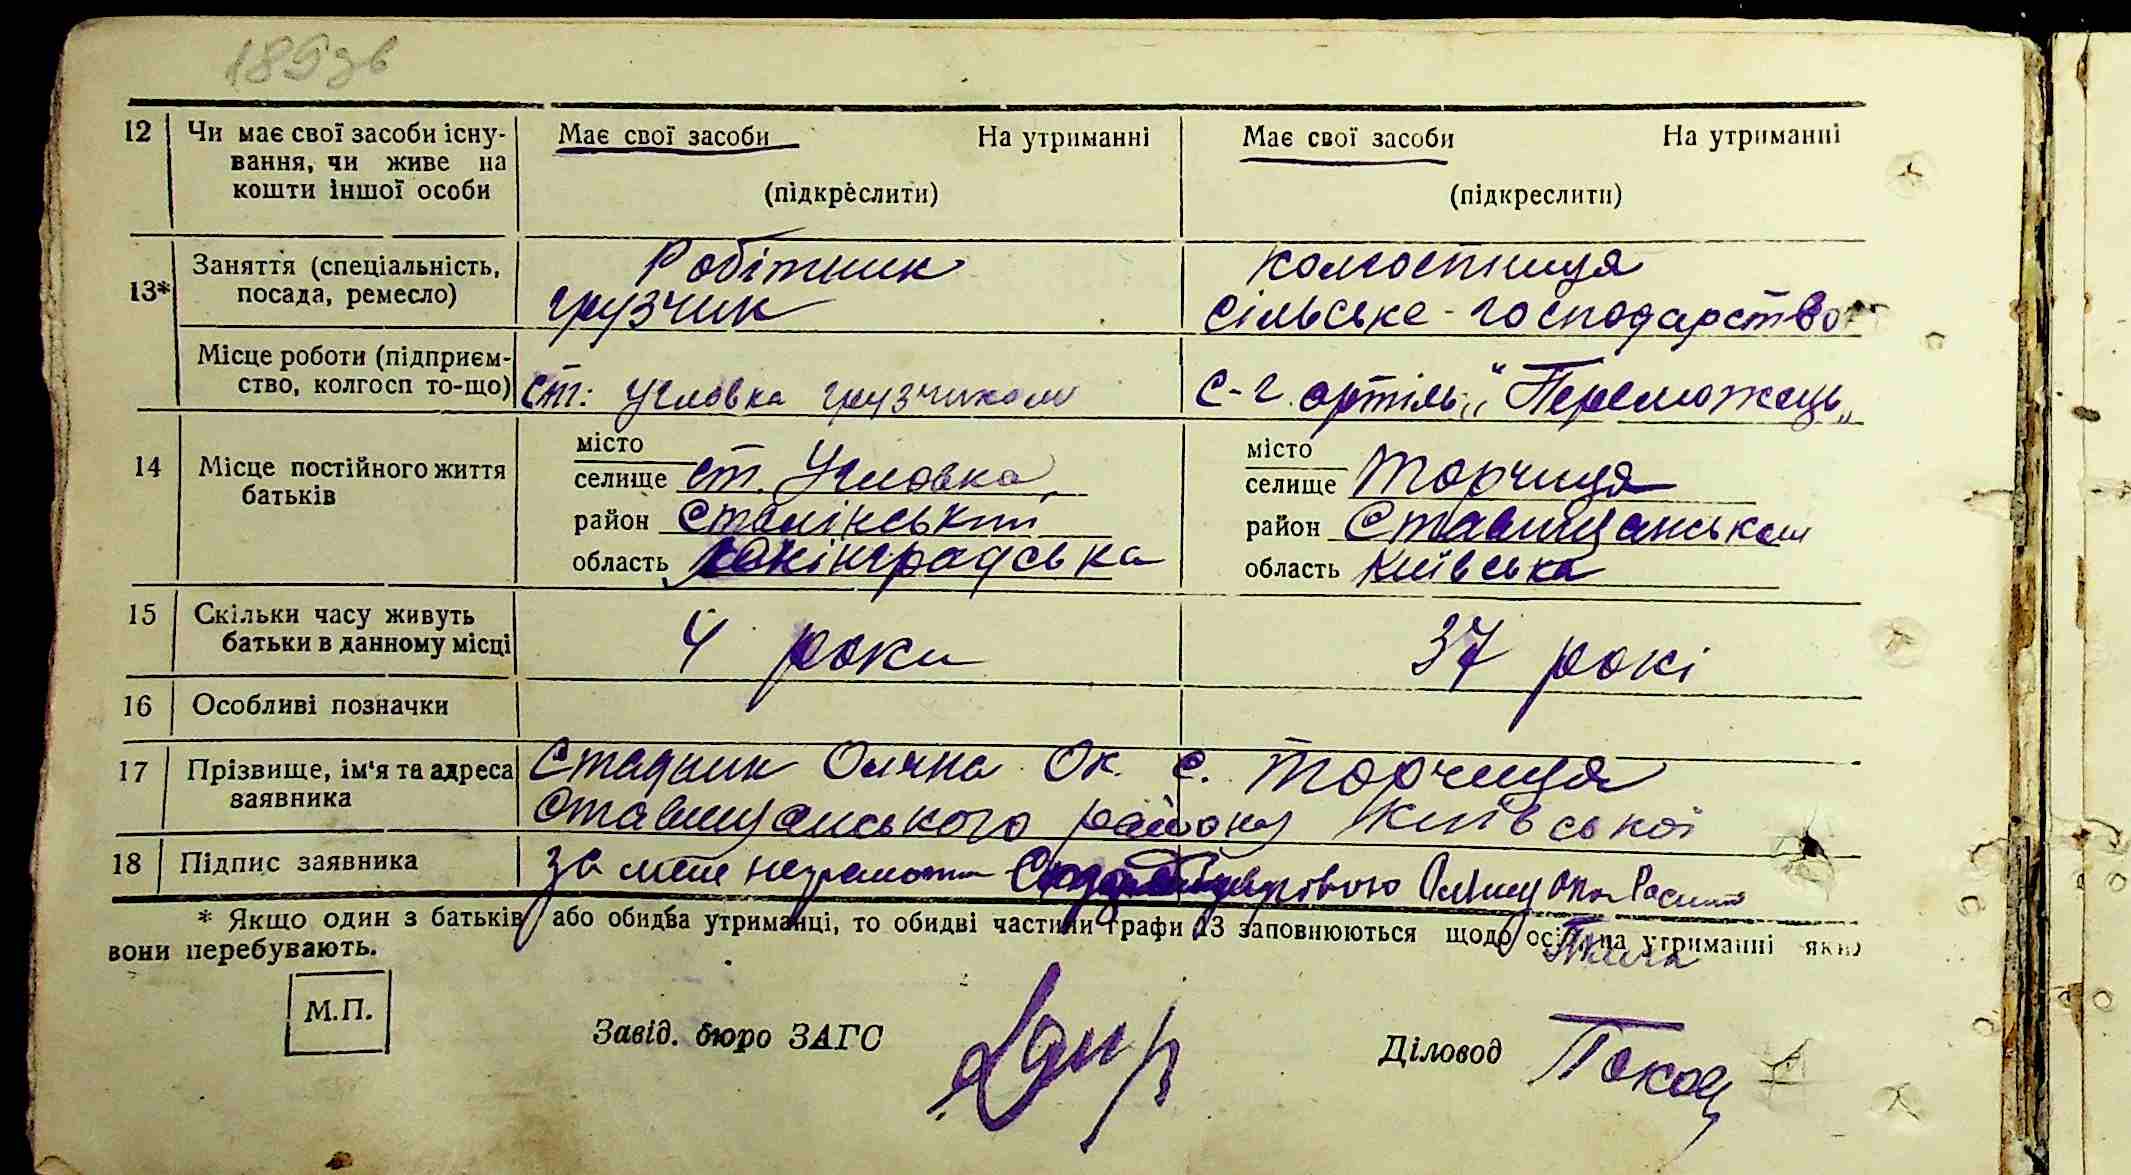 189 зв
12 Чи має свої засоби існу- Має свої засоби На утриманні Має свої засоби На утриманні
вання, чи живе на
кошти іншої особи (підкреслити) (підкреслити)
13* Заняття (спеціальність, Робітник колгоспниця
посада, ремесло) грузчик сільське-господарство
Місце роботи (підприєм-
ство, колгосп то-що) ст: Угловка грузчиком с-г. артіль „Переможець„
14 Місце постійного життя місто місто
батьків селище ст. Угловка селище Торчиця
район Сталінський район Ставищанськом
область Ленінградська область Київська
15 Скільки часу живуть
батьки в данному місці 4 роки 37 рокі
16 Особливі позначки
17 Прізвище, ім'я та адреса Стадник Оляна Ок. с. Торчиця
заявника Ставищанського району Київської
18 Підпис заявника за мене
* Якщо один з батьків або обидва утриманці, то обидві частини графи 13 заповнюються щодо осіб, на утриманні яких
вони перебувають.
М.П.
Завід. бюро ЗАГС Діловод